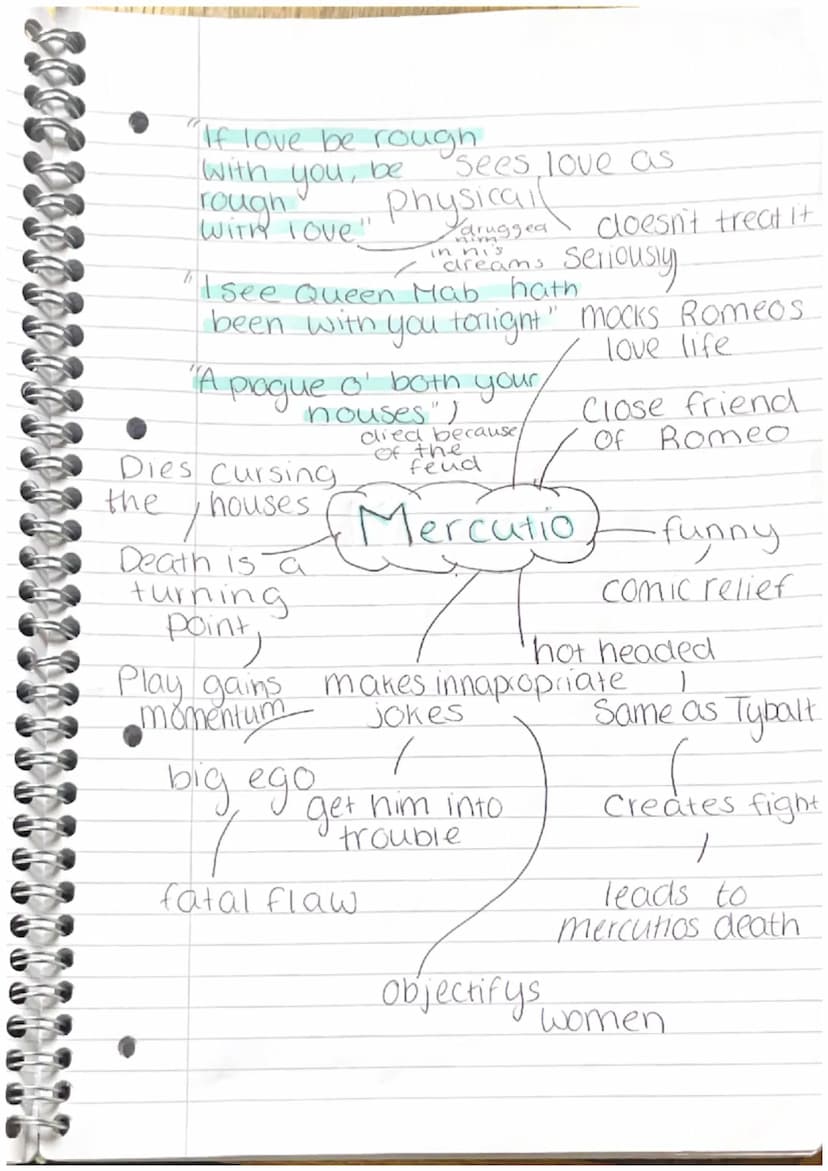 "If love be rough
with you, be
rough
with love"
sees love as
physical
doesn't treat it
seriously
drugged
him
in his
dreams
"I see Queen Mab hath
been with you tonight"
mocks Romeos
love life
"A plague o' both your
houses"
died because
of the
feud
Close friend
of Romeo
Dies cursing
the houses
Mercutio
funny
comic relief
Death is a
turning
point
hot headed
Same as Tybalt
Play gains
momentum
makes innapropriate
jokes
big ego
get him into
trouble
Creates fight
fatal flaw
leads to
mercutios death
Objectifys
women